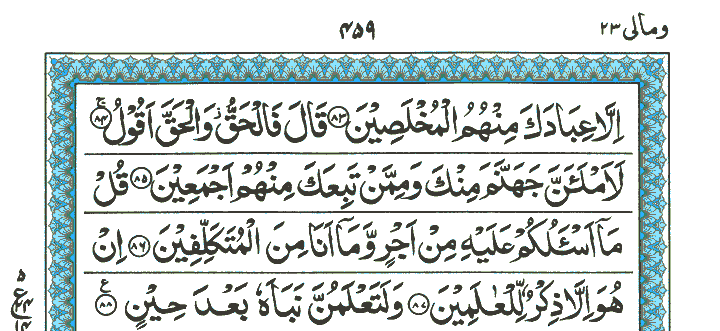 ومالی ۲۳
۴۵۹
اِلَّا عِبَادَكَ مِنْهُمُ الْمُخْلَصِيْنَ ﴿۸۳﴾ قَالَ فَالْحَقُّ وَالْحَقَّ اَقُوْلُ ﴿۸۴﴾ ع
لَاَمْلَئَنَّ جَهَنَّمَ مِنْكَ وَمِمَّنْ تَبِعَكَ مِنْهُمْ اَجْمَعِيْنَ ﴿۸۵﴾ قُلْ
مَاۤ اَسْـَٔلُكُمْ عَلَيْهِ مِنْ اَجْرٍ وَّمَاۤ اَنَا مِنَ الْمُتَكَلِّفِيْنَ ﴿۸۶﴾ اِنْ
هُوَ اِلَّا ذِكْرٌ لِّلْعٰلَمِيْنَ ﴿۸۷﴾ وَلَتَعْلَمُنَّ نَبَاَهٗ بَعْدَ حِيْنٍ ﴿۸۸﴾ ع
۵
ع
۱۴